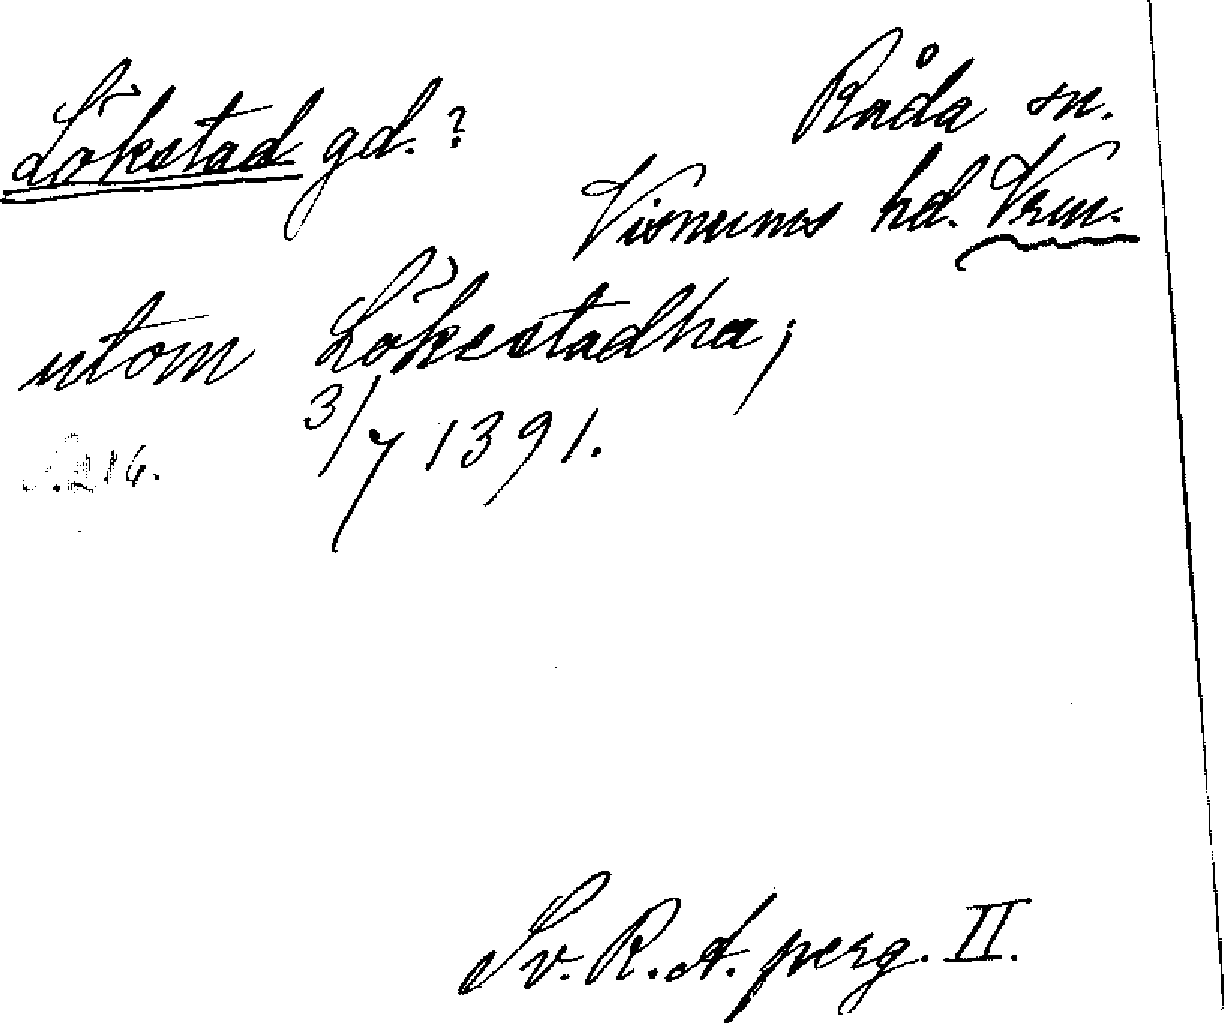 Lökstad gd.?
Råda sn.
Visnums hd. Vrm.
utom Løkestadha,
3/7 1391.
S. 216.
Sv. R. A. perg. II.